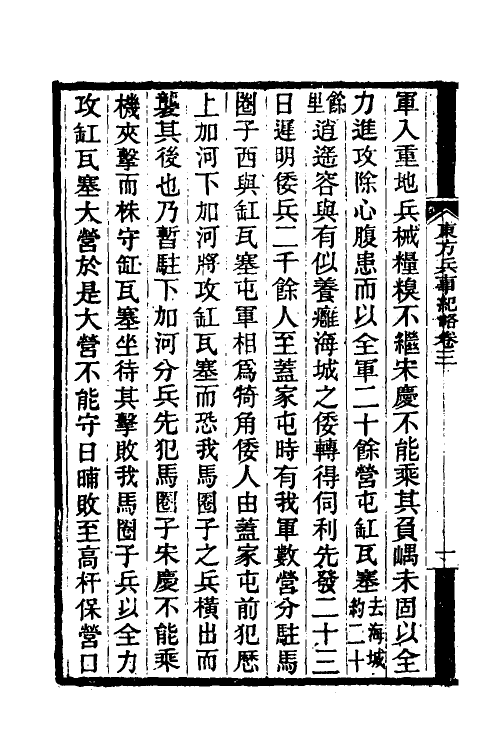 東方兵事紀略卷三
十
軍入重地兵械糧糗不繼宋慶不能乘其負嵎未固以全
力進攻除心腹患而以全軍二十餘營屯缸瓦塞去海城約二十
餘里逍遙容與有似養癰海城之倭轉得伺利先發二十三
日遲明倭兵二千餘人至蓋家屯時有我軍數營分駐馬
圈子西與缸瓦塞屯軍相爲犄角倭人由蓋家屯前犯歷
上加河下加河將攻缸瓦塞而恐我馬圈子之兵橫出而
襲其後也乃暫駐下加河分兵先犯馬圈子宋慶不能乘
機夾擊而株守缸瓦塞坐待其擊敗我馬圈子兵以全力
攻缸瓦塞大營於是大營不能守日晡敗至高杆保營口